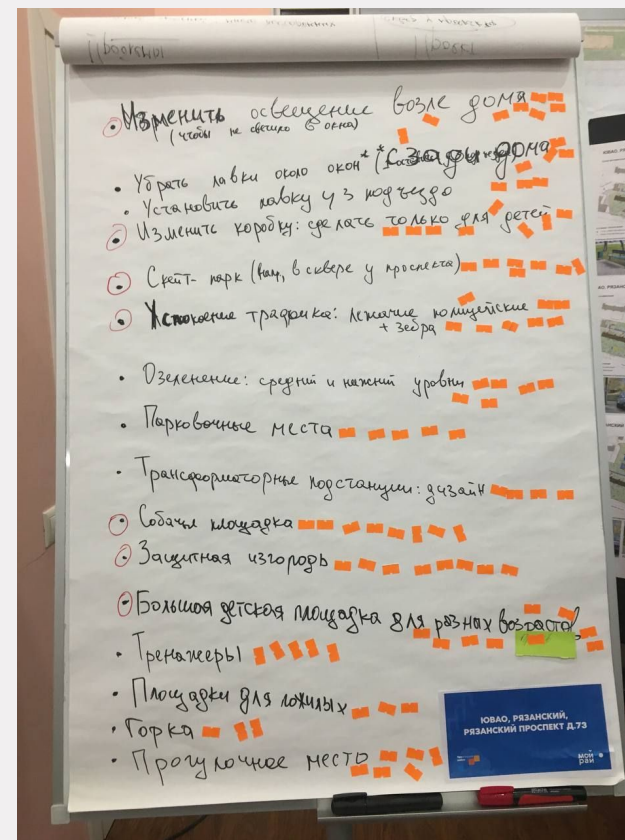 Изменить освещение возле дома
(чтобы не светило в окна)
• Убрать лавки около окон* (* сзади дома)
• Установить лавку у 3 подъезда
• Изменить коробку: сделать только для детей
• Скейт-парк (в сквере у проспекта)
• Успокоение трафика: лежачие полицейские
+ зебра
• Озеленение: средний и нижний уровни
• Парковочные места
• Трансформаторные подстанции: дизайн
• Собачья площадка
• Защитная изгородь
• Большая детская площадка для разных возрастов
• Тренажеры
• Площадки для пожилых
• Горка
• Прогулочное место
ЮВАО, РЯЗАНСКИЙ,
РЯЗАНСКИЙ ПРОСПЕКТ Д.73
мой
рай